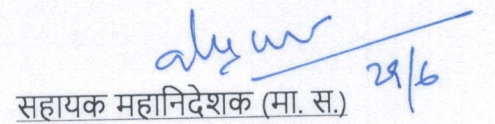 29/6
सहायक महानिदेशक (मा. स.)